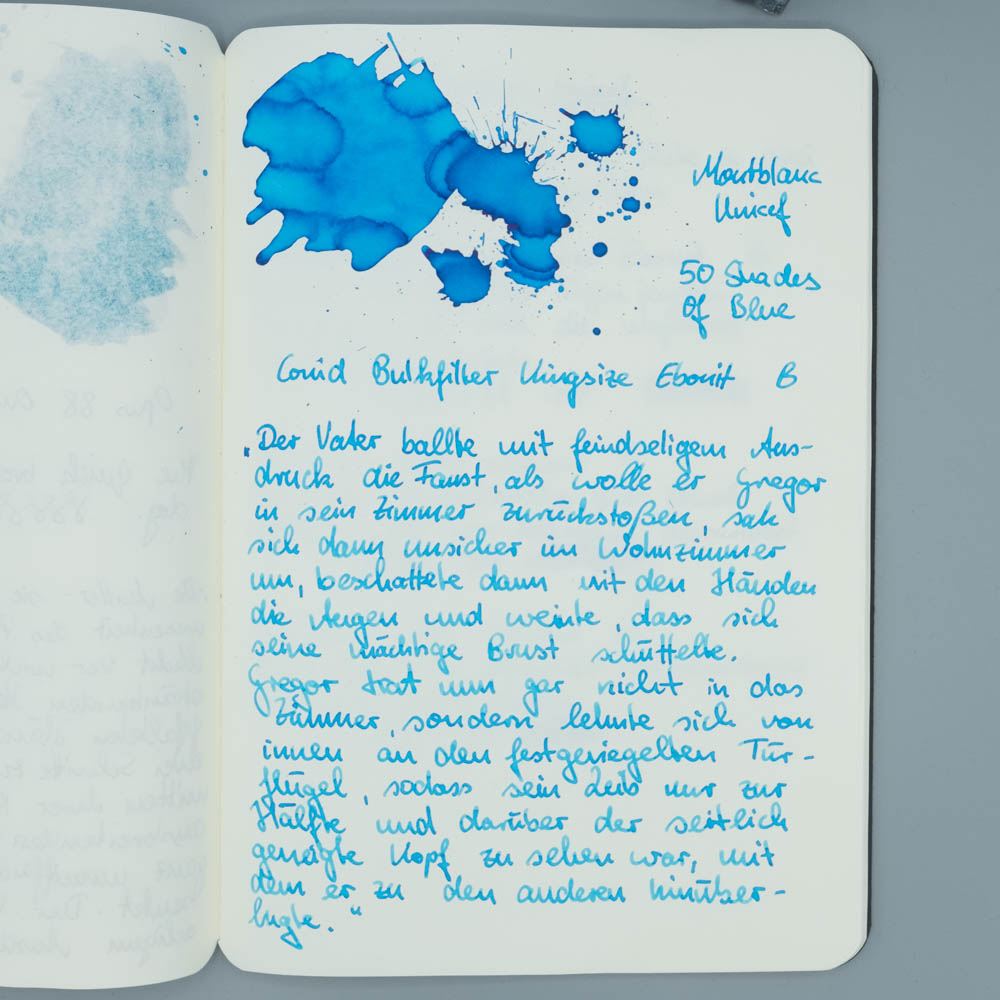 Montblanc
Unicef
50 Shades
Of Blue
Conid Bulkfiller Kingsize Ebonit B
„Der Vater ballte mit feindseligem Aus-
druck die Faust, als wolle er Gregor
in sein Zimmer zurückstoßen, sah
sich dann unsicher im Wohnzimmer
um, beschattete dann mit den Händen
die Augen und weinte, dass sich
seine mächtige Brust schüttelte.
Gregor trat nun gar nicht in das
Zimmer, sondern lehnte sich von
innen an den festgeriegelten Tür-
flügel, sodass sein Leib nur zur
Hälfte und darüber der seitlich
geneigte Kopf zu sehen war, mit
dem er zu den anderen hinüber-
lugte.“